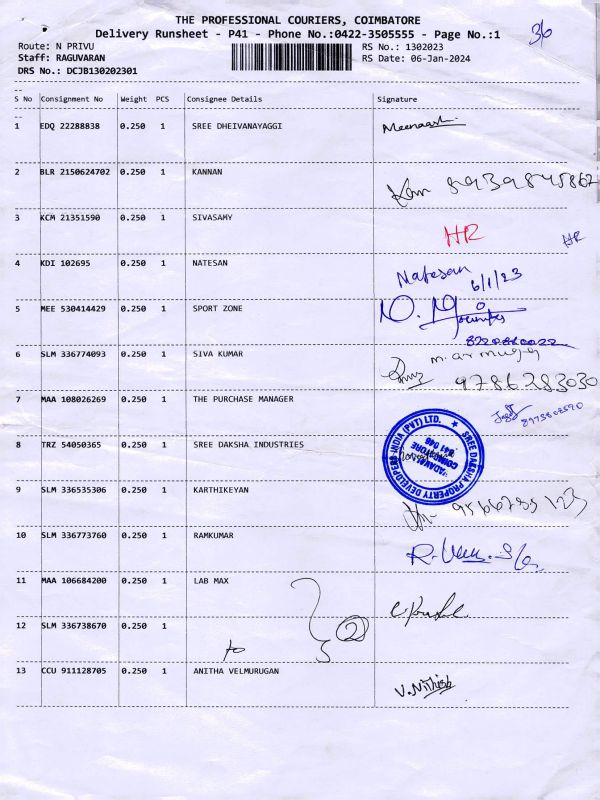 THE PROFESSIONAL COURIERS, COIMBATORE
Delivery Runsheet - P41 - Phone No.:0422-3505555 - Page No.:1
36
Route: N PRIVU
RS No.: 1302023
Staff: RAGUVARAN
RS Date: 06-Jan-2024
DRS No.: DCJB130202301
--
S No Consignment No Weight PCS Consignee Details Signature
--
1 EDQ 22288838 0.250 1 SREE DHEIVANAYAGGI
2 BLR 2150624702 0.250 1 KANNAN 8939845862
3 KCM 21351590 0.250 1 SIVASAMY HR HR
4 KDI 102695 0.250 1 NATESAN Natesan 6/1/23
5 MEE 530414429 0.250 1 SPORT ZONE
6 SLM 336774093 0.250 1 SIVA KUMAR 9786283030
7 MAA 108026269 0.250 1 THE PURCHASE MANAGER
8 TRZ 54050365 0.250 1 SREE DAKSHA INDUSTRIES
SREE DAKSHA PROPERTY DEVELOPERS INDIA (PVT) LTD.
VADAVALLI
COIMBATORE
641 046
9 SLM 336535306 0.250 1 KARTHIKEYAN
10 SLM 336773760 0.250 1 RAMKUMAR
11 MAA 106684200 0.250 1 LAB MAX
12 SLM 336738670 0.250 1 to 2
13 CCU 911128705 0.250 1 ANITHA VELMURUGAN V.Nithish